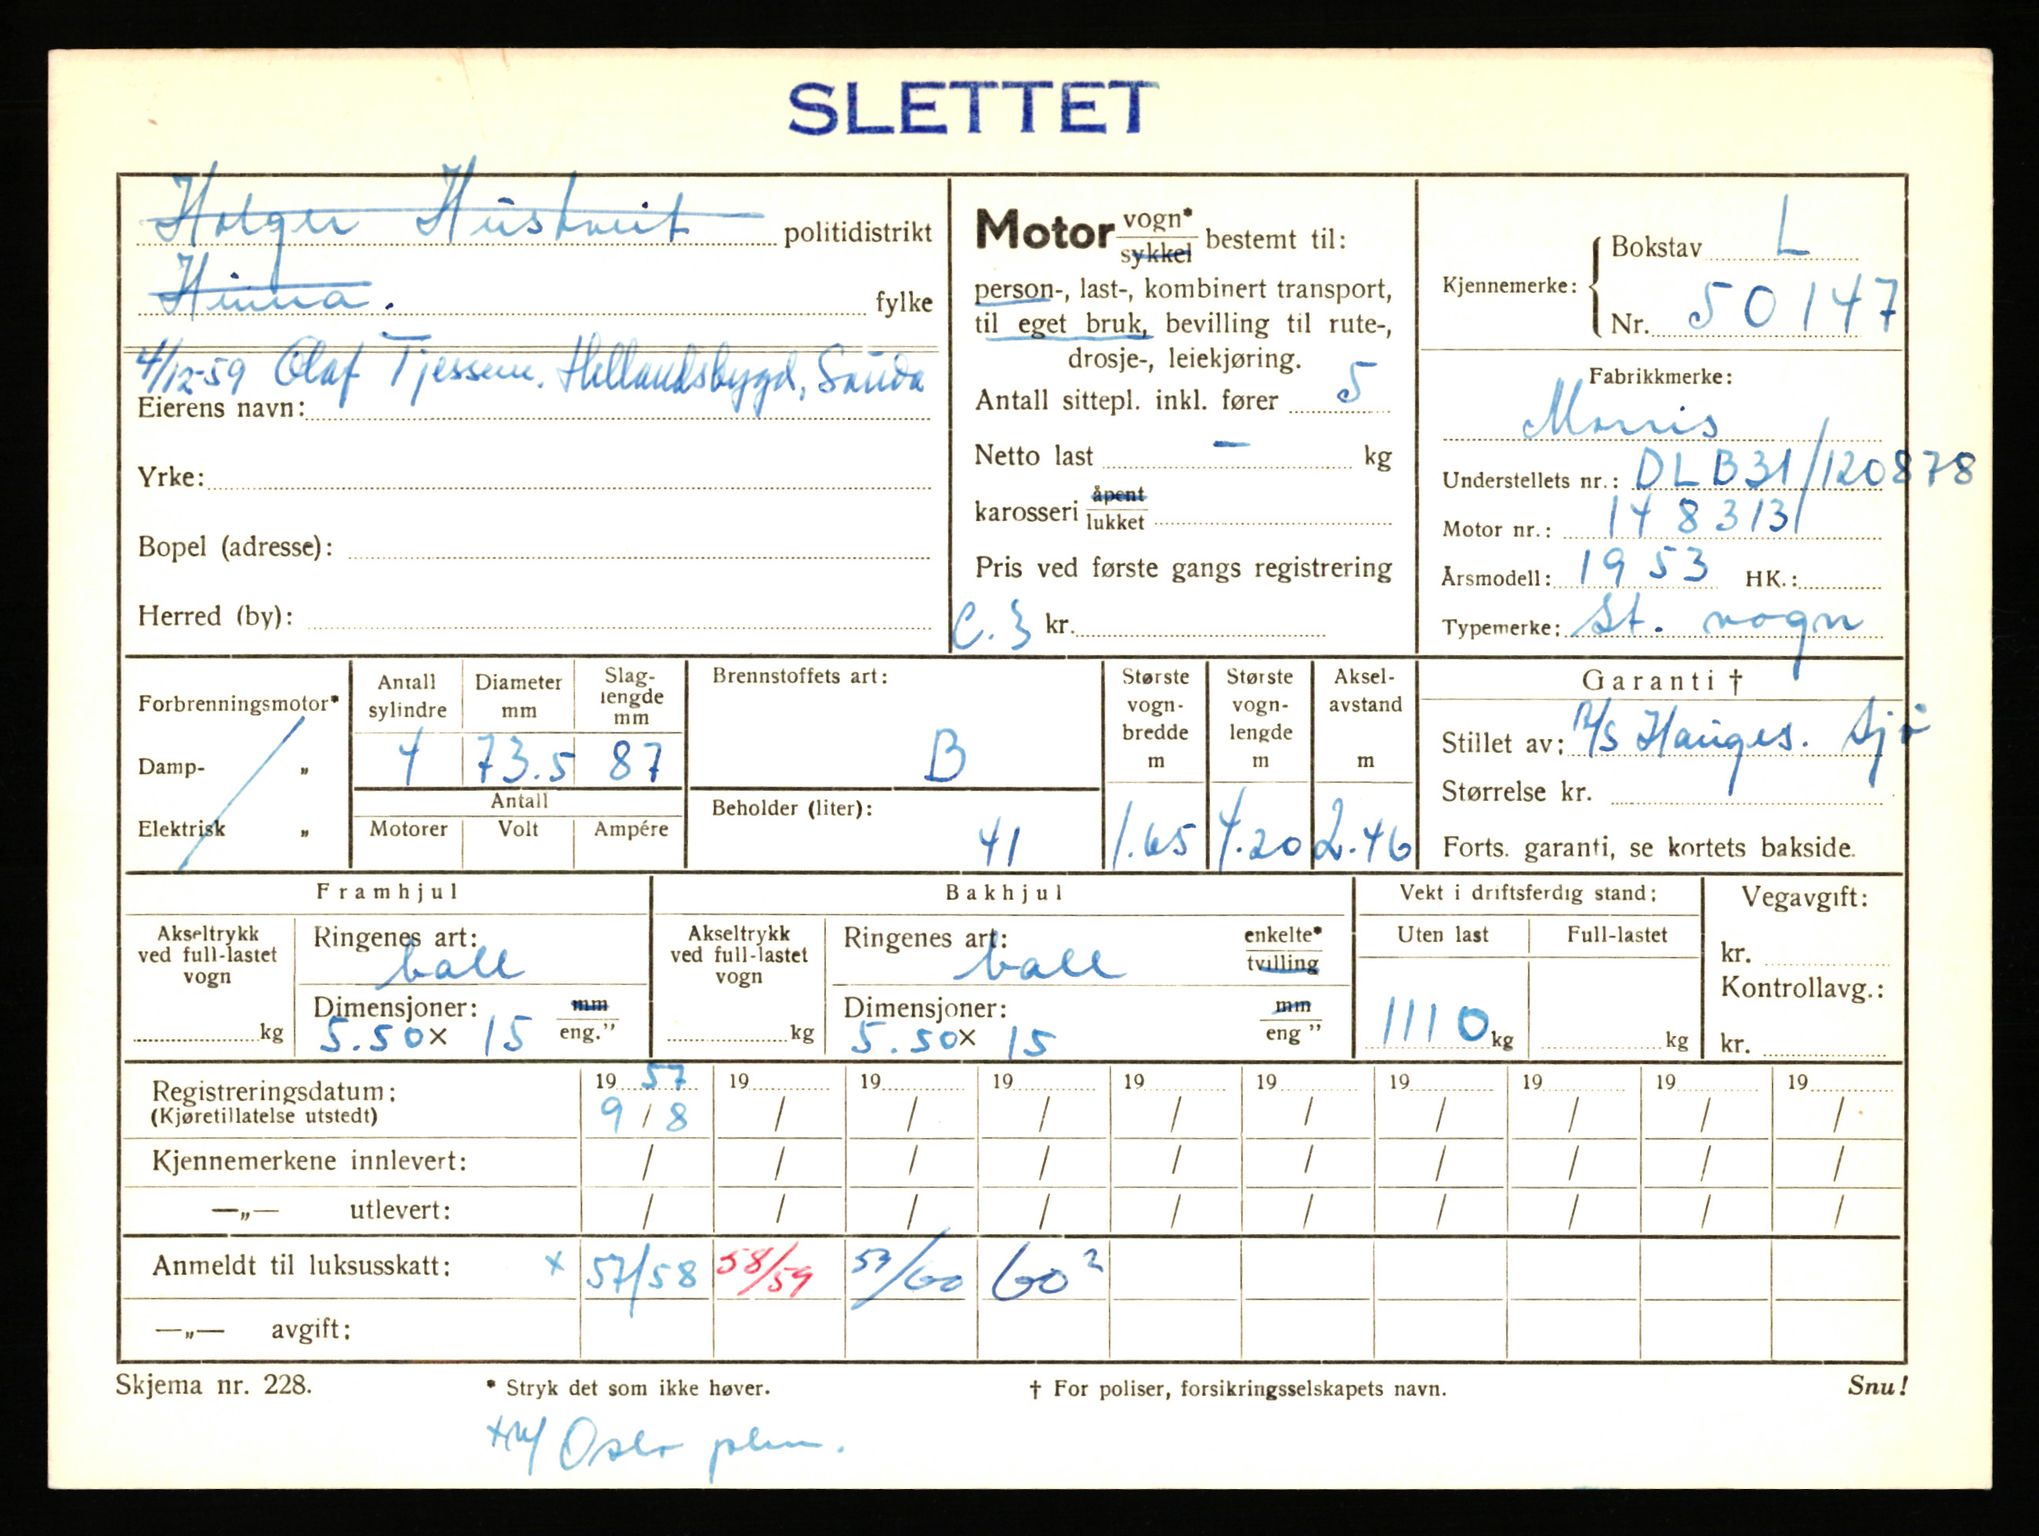 SLETTET
Holger Hustveit politidistrikt
Hinna. fylke
4/12-59 Olaf Tjessem. Hellandsbygd, Sauda
Eierens navn:
Yrke:
Bopel (adresse):
Herred (by):
Motor vogn* sykkel bestemt til:
person-, last-, kombinert transport,
til eget bruk, bevilling til rute-,
drosje-, leiekjøring.
Antall sittepl. inkl. fører 5
Netto last — kg
karosseri åpent lukket
Pris ved første gangs registrering
C. 3 kr.
Kjennemerke: Bokstav L
Nr. 50147
Fabrikkmerke:
Morris
Understellets nr.: DLB31/120878
Motor nr.: 148313
Årsmodell: 1953 HK.:
Typemerke: St. vogn
Forbrenningsmotor*
Damp- „
Elektrisk „
Antall sylindre 4
Diameter mm 73.5
Slaglengde mm 87
Antall
Motorer Volt Ampére
Brennstoffets art:
B
Beholder (liter):
41
Største vognbredde m 1.65
Største vognlengde m 4.20
Akselavstand m 2.46
Garanti †
Stillet av: A/S Hauges.
Størrelse kr.
Forts. garanti, se kortets bakside.
Framhjul
Akseltrykk ved full-lastet vogn kg
Ringenes art: ball
Dimensjoner: mm
5.50 x 15 eng.”
Bakhjul
Akseltrykk ved full-lastet vogn kg
Ringenes art: ball enkelte* tvilling
Dimensjoner: mm
5.50 x 15 eng ”
Vekt i driftsferdig stand:
Uten last Full-lastet
1110 kg kg
Vegavgift:
kr.
Kontrollavg.:
kr.
Registreringsdatum: 19 57 19 19 19 19 19 19 19 19 19
(Kjøretillatelse utstedt) 9 / 8 / / / / / / / / /
Kjennemerkene innlevert: / / / / / / / / / /
—„— utlevert: / / / / / / / / / /
Anmeldt til luksusskatt: x 57/58 58/59 59/60 60²
—„— avgift:
Skjema nr. 228. * Stryk det som ikke høver. † For poliser, forsikringsselskapets navn. Snu!
Oslo